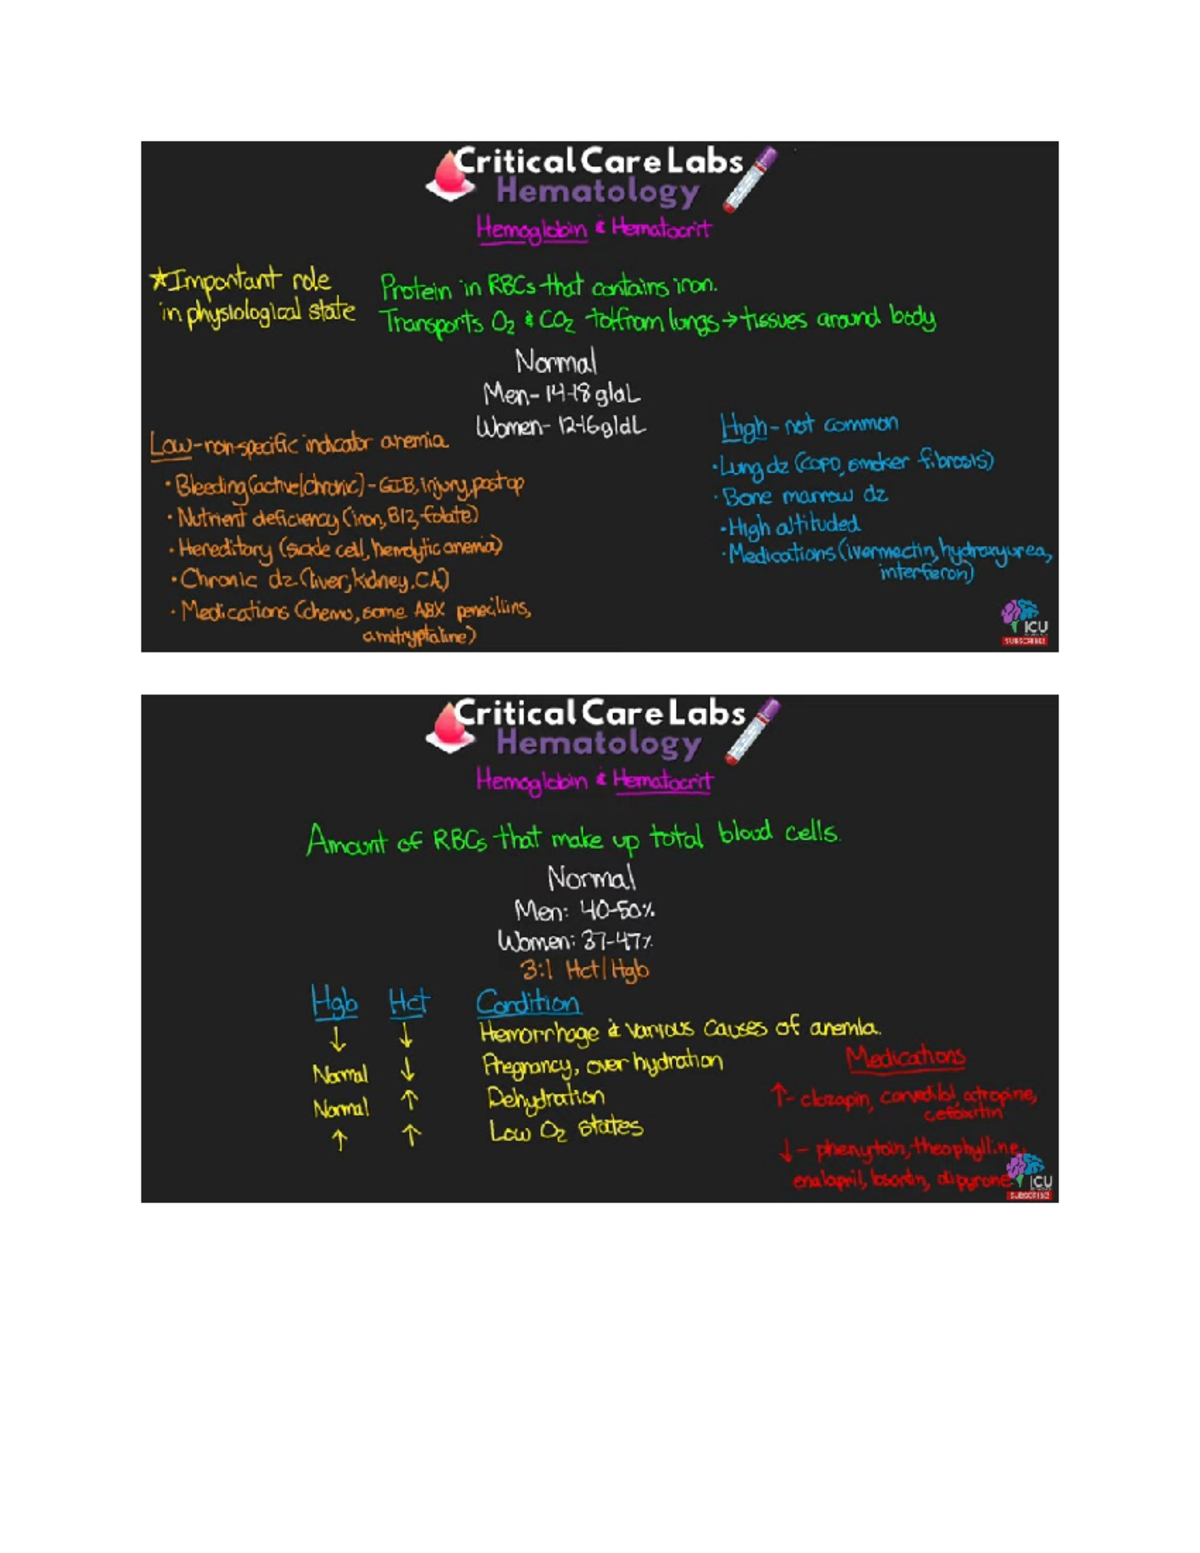 Critical Care Labs
Hematology
Hemoglobin & Hematocrit
★Important role
in physiological state
Protein in RBCs that contains iron.
Transports O2 & CO2 to/from lungs → tissues around body
Normal
Men- 14-18 g/dL
Women- 12-16 g/dL
Low - non-specific indicator anemia
• Bleeding (active/chronic) - GIB, injury, post op
• Nutrient deficiency (iron, B12, folate)
• Hereditory (sickle cell, hemolytic anemia)
• Chronic dz (liver, kidney, CA)
• Medications (chemo, some ABX penecillins,
amitryptaline)
High - not common
• Lung dz (COPD, smoker fibrosis)
• Bone marrow dz
• High altituded
• Medications (ivermectin, hydroxyurea,
interfieron)
ICU
SUBSCRIBE!
Critical Care Labs
Hematology
Hemoglobin & Hematocrit
Amount of RBCs that make up total blood cells.
Normal
Men: 40-50%
Women: 37-47%
3:1 Hct/Hgb
Hgb Hct Condition
↓ ↓ Hemorrhage & various causes of anemia.
Normal ↓ Pregnancy, over hydration
Normal ↑ Dehydration
↑ ↑ Low O2 states
Medications
↑- clozapin, carvedilol, atropine,
cefoxitin
↓- phenytoin, theophylline,
enalapril, losartin, dipyrone
ICU
SUBSCRIBE